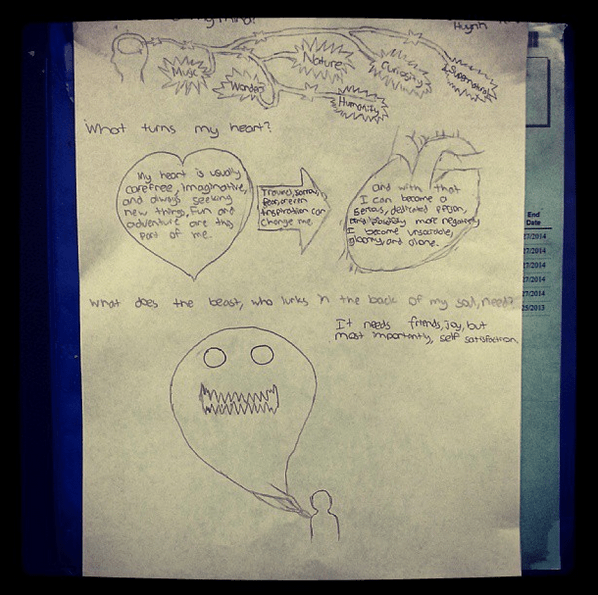 my mind?
Huynh
Music
Wonder
Nature
Humanity
Curiosity
Supernatural
What turns my heart?
My heart is usually
carefree, imaginative,
and always seeking
new things, fun and
adventure are this
part of me.
sorrow,
fear, or even
inspiration can
change me.
and with that
I can become a
serious, dedicated person,
and more negatively
I become unsociable,
gloomy, and alone.
What does the beast, who lurks in the back of my soul, need?
It needs friends, joy, but
most importantly, self satisfaction.
End
Date
27/2014
27/2014
27/2014
27/2014
25/2013